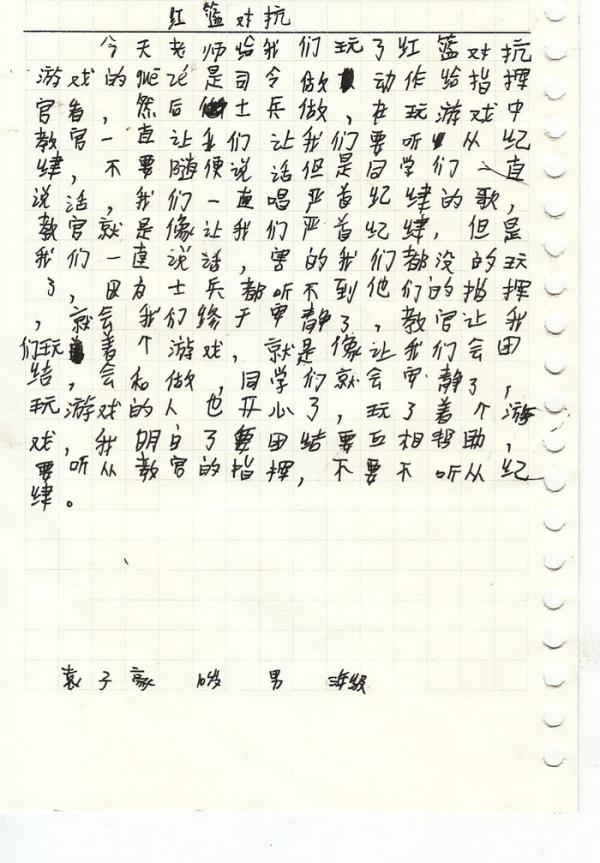 红篮对抗
今天老师给我们玩了红篮对抗
游戏的guē zé是司令做动作给指挥
官看，然后士兵做，在玩游戏中
教官一直让我们让我们要听从纪
律，不要随便说话但是同学们一直
说话，我们一直唱严首纪律的歌，
教官就是像让我们严首纪律，但是
我们一直说话，害的我们都没的玩
了，因为士兵都听不到他们的指挥
，就会我们终于安静了，教官让我
们玩着个游戏，就是像让我们会团
结，会和做，同学们就会安静了，
玩游戏的人也开心了，玩了着个游
戏，我明白了要团结要互相帮助，
要听从教官的指挥，不要不听从纪
律。
袁子豪 10岁 男 三年级